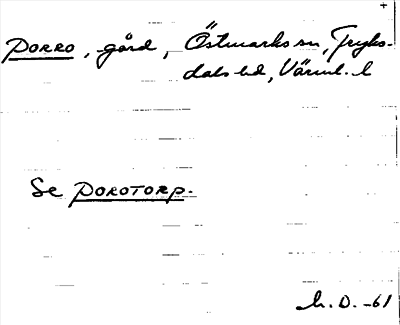 PORRO, gård, Östmarks sn, Fryks-
dals hd, Värml. l
Se POROTORP.
h. D. -61